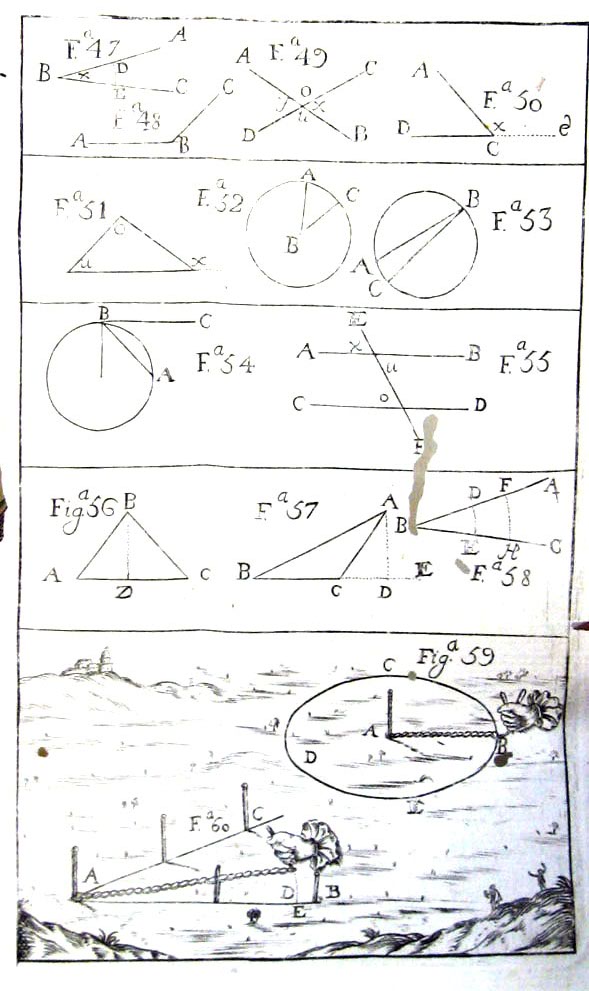 F.ª47
A
B
x
D
E
C
F.ª48
A
B
C
F.ª49
A
C
o
y
x
u
D
B
F.ª50
A
D
x
C
F.ª51
o
u
x
F.ª52
A
C
B
F.ª53
B
A
C
F.ª54
B
C
A
F.ª55
E
A
x
B
u
C
o
D
F
Figª56
B
A
D
C
F.ª57
A
B
C
D
E
F.ª58
B
D
F
A
E
H
C
Fig.ª 59
C
A
B
D
E
F.ª60
C
A
D
B
E